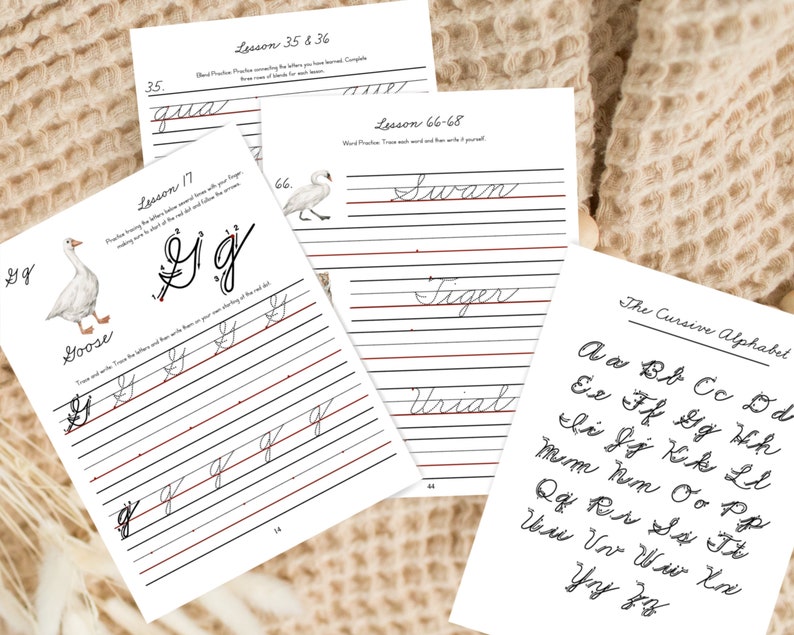 Lesson 35 & 36
Blend Practice: Practice connecting the letters you have learned. Complete
three rows of blends for each lesson.
35.
qua que
Lesson 66-68
Word Practice: Trace each word and then write it yourself.
66.
Swan
Tiger
Urial
44
Lesson 17
Practice tracing the letters below several times with your finger,
making sure to start at the red dot and follow the arrows.
G g
G g
Goose
Trace and write: Trace the letters and then write them on your own starting at the red dot.
G G G G G
g g g g g
14
The Cursive Alphabet
Aa Bb Cc Dd
Ee Ff Gg Hh
Ii Jj Kk Ll
Mm Nn Oo Pp
Qq Rr Ss Tt
Uu Vv Ww Xx
Yy Zz